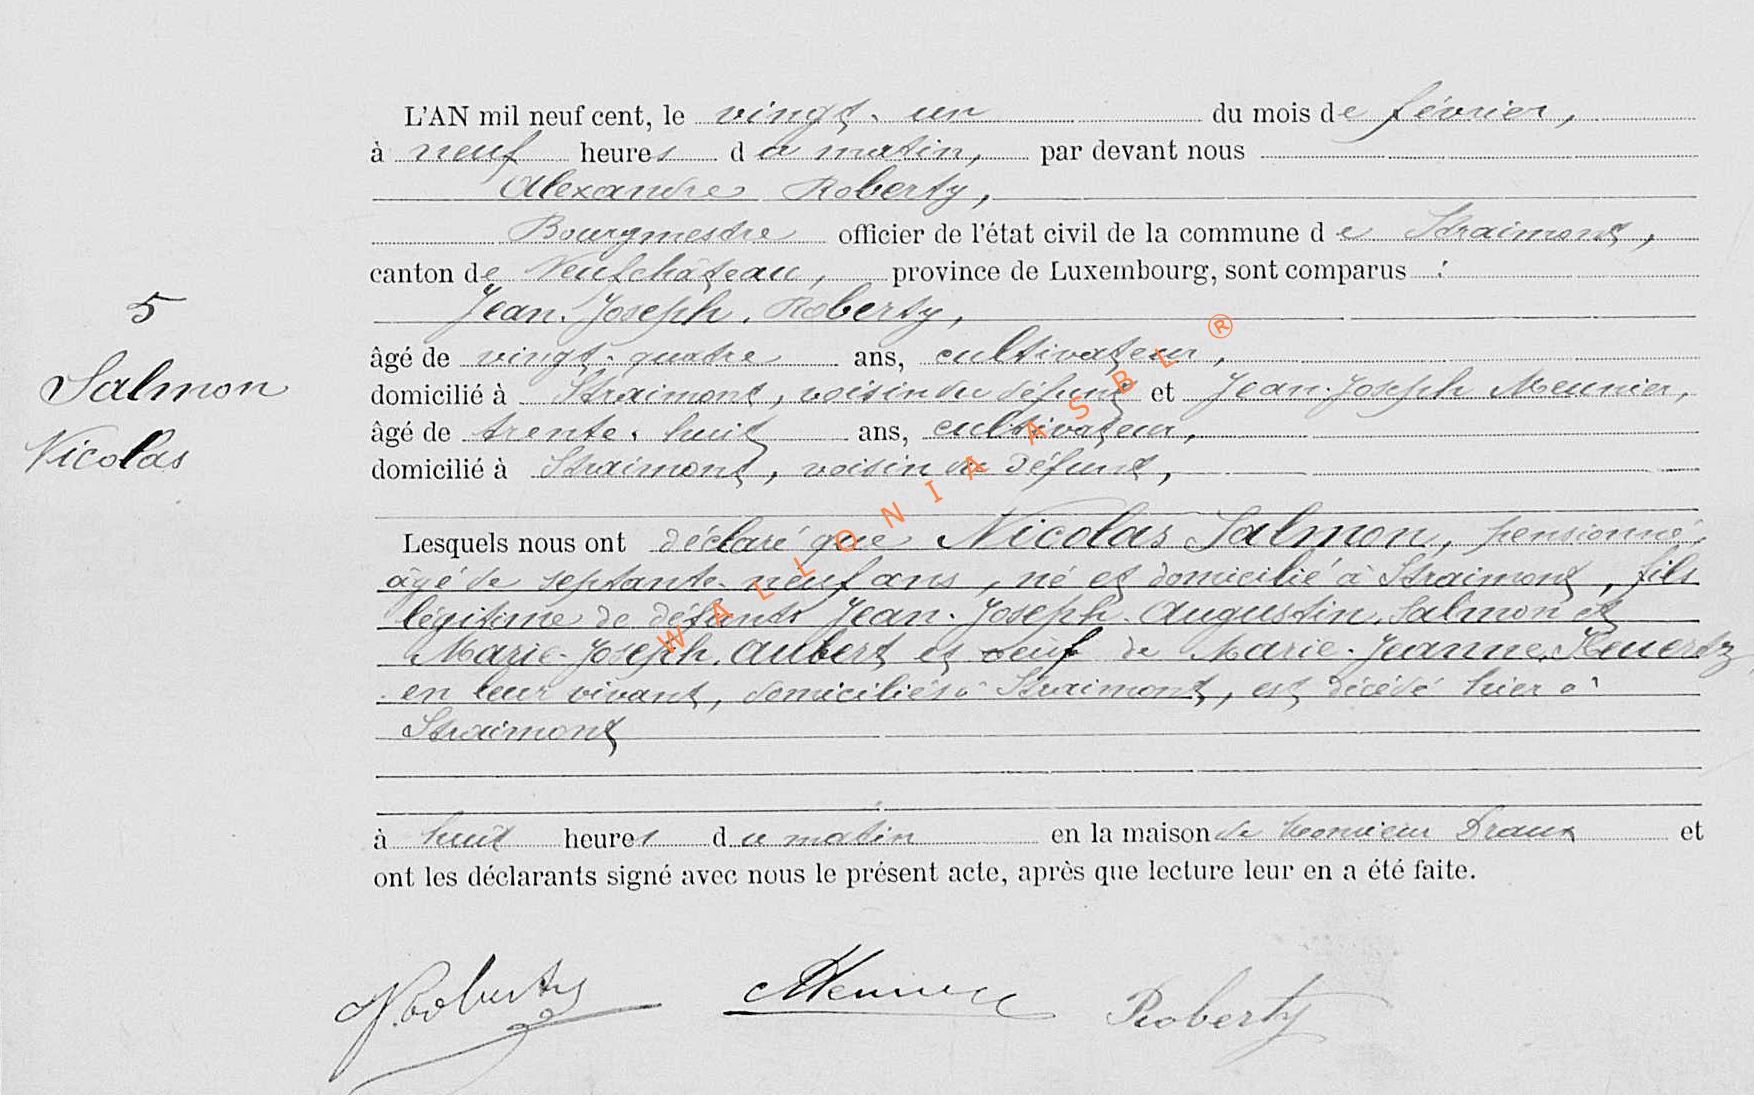 L'AN mil neuf cent, le vingt-un du mois de février,
à neuf heures du matin, par devant nous
Alexandre Roberty,
Bourgmestre officier de l'état civil de la commune de Straimont,
canton de Neufchâteau, province de Luxembourg, sont comparus :
Jean-Joseph Roberty,
âgé de vingt-quatre ans, cultivateur,
domicilié à Straimont, voisin du défunt et Jean-Joseph Meunier,
âgé de trente-huit ans, cultivateur,
domicilié à Straimont, voisin du défunt,
5
Salmon
Nicolas
Lesquels nous ont déclaré que Nicolas Salmon, pensionné,
âgé de septante-neuf ans, né et domicilié à Straimont, fils
légitime de défunts Jean-Joseph-Augustin Salmon et
Marie-Joseph Aubert et veuf de Marie-Jeanne
en leur vivant, domiciliés à Straimont, est décédé hier à
Straimont
à huit heures du matin en la maison de Monsieur Draux et
ont les déclarants signé avec nous le présent acte, après que lecture leur en a été faite.
J. Roberty Meunier Roberty
WALLONIA ASBL ®